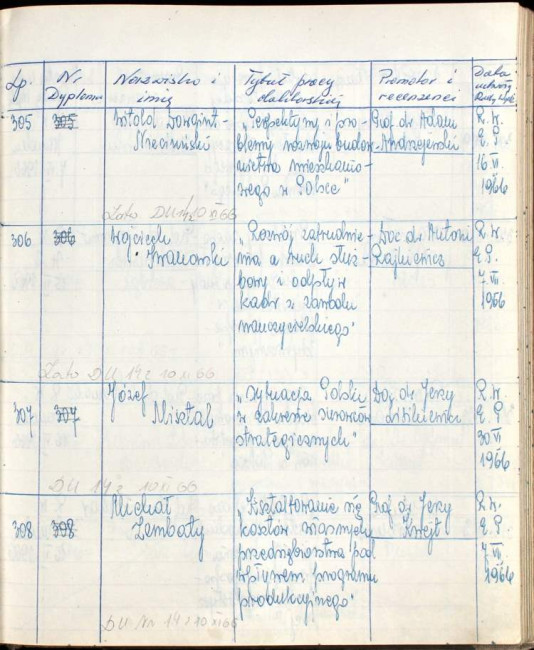 Lp.
Nr Dyplomu
Nazwisko i imię
Tytuł pracy doktorskiej
Promotor i recenzenci
Data uchwały Rady Wydz.
305
305
Witold
"Perspektywy i pro-
blemy rozwoju budow-
nictwa mieszkanio-
wego w Polsce"
Prof. dr Adam
Andrzejewski
R.W.
E.P.
16 VI.
1966
306
306
Wojciech
Iwanowski
"Rozwój zatrudnie-
nia a ruch służ-
bowy i odpływ
kadr z zawodu
nauczycielskiego"
Doc. dr Antoni
Rajkiewicz
R.W.
E.P.
7. VII.
1966
307
307
Józef
Misztal
"Sytuacja Polski
w zakresie surowców
strategicznych"
Doc. dr Jerzy
R.W.
E.P.
30 VI
1966
DU 19 z 10 XI 66
308
308
Michał
Zembaty
"Kształtowanie się
kosztów własnych
przedsiębiorstwa pod
wpływem programu
produkcyjnego"
Prof. dr Jerzy
R.W.
E.P.
7 VII
1966
DU Nr 19 z 10 XI 66